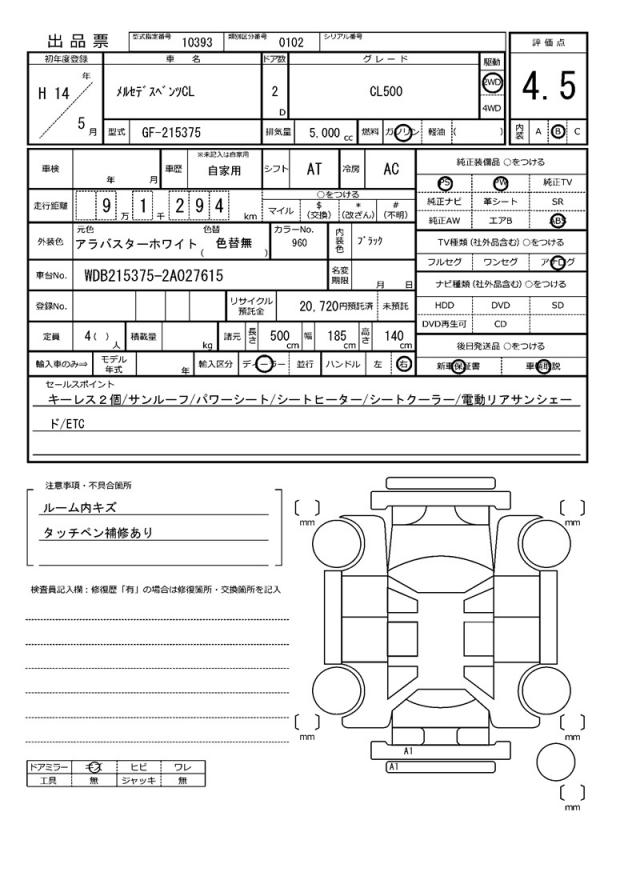 出品票 型式指定番号 10393 類別区分番号 0102 シリアル番号
評価点
4.5
内装 A B C
初年度登録 車名 ドア数 グレード 駆動
H 14 年 5 月
メルセデスベンツCL 2 D CL500 2WD 4WD
型式 GF-215375 排気量 5,000 cc 燃料 ガソリン 軽油 ( )
車検 年 月 車歴 ※未記入は自家用 自家用 シフト AT 冷房 AC
走行距離 9 万 1 千 2 9 4 km
○をつける
マイル $ (交換) * (改ざん) # (不明)
外装色 元色 アラバスターホワイト 色替 色替無 ( ) カラーNo. 960 内装色 ブラック
車台No. WDB215375-2A027615 名変期限 月 日
登録No. リサイクル預託金 20,720円預託済 未預託
定員 4( ) 人 積載量 kg 諸元 長さ 500 cm 幅 185 cm 高さ 140 cm
輸入車のみ⇒ モデル年式 年 輸入区分 ディーラー 並行 ハンドル 左 右
純正装備品 ○をつける
PS PW 純正TV
純正ナビ 革シート SR
純正AW エアB ABS
TV種類(社外品含む)○をつける
フルセグ ワンセグ アナログ
ナビ種類(社外品含む)○をつける
HDD DVD SD
DVD再生可 CD
後日発送品 ○をつける
新車保証書 車輌取説
セールスポイント
キーレス2個/サンルーフ/パワーシート/シートヒーター/シートクーラー/電動リアサンシェー
ド/ETC
注意事項・不具合箇所
ルーム内キズ
タッチペン補修あり
検査員記入欄:修復歴「有」の場合は修復箇所・交換箇所を記入
ドアミラー キズ ヒビ ワレ
工具 無 ジャッキ 無
mm
mm
mm
mm
A1
A1
mm